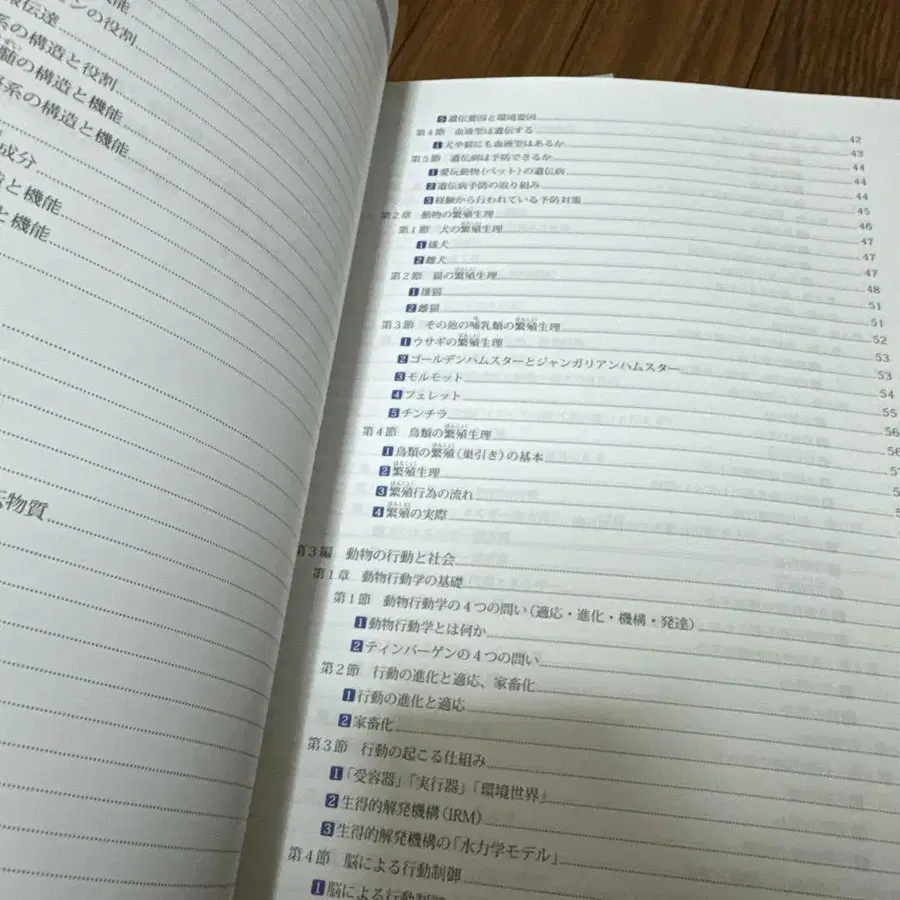 機能
ンの役割
伝達
系の構造と役割
髄の構造と機能
系の構造と機能
成分
と機能
と機能
物質
5 遺伝要因と環境要因
第4節 血液型は遺伝する 42
1 犬や猫にも血液型はあるか 43
第5節 遺伝病は予防できるか 44
1 愛玩動物(ペット)の遺伝病 44
2 遺伝病予防の取り組み 44
3 経験から行われている予防対策 45
第2章 動物の繁殖生理 46
第1節 犬の繁殖生理 47
1 雄犬 47
2 雌犬 48
第2節 猫の繁殖生理
1 雄猫 51
2 雌猫 51
第3節 その他の哺乳類の繁殖生理 52
1 ウサギの繁殖生理 53
2 ゴールデンハムスターとジャンガリアンハムスター 53
3 モルモット 54
4 フェレット 55
5 チンチラ 56
第4節 鳥類の繁殖生理 56
1 鳥類の繁殖(巣引き)の基本
2 繁殖生理
3 繁殖行為の流れ
4 繁殖の実際
第3編 動物の行動と社会
第1章 動物行動学の基礎
第1節 動物行動学の4つの問い(適応・進化・機構・発達)
1 動物行動学とは何か
2 ティンバーゲンの4つの問い
第2節 行動の進化と適応、家畜化
1 行動の進化と適応
2 家畜化
第3節 行動の起こる仕組み
1 「受容器」「実行器」「環境世界」
2 生得的解発機構(IRM)
3 生得的解発機構の「水力学モデル」
第4節 脳による行動制御
1 脳による行動制御